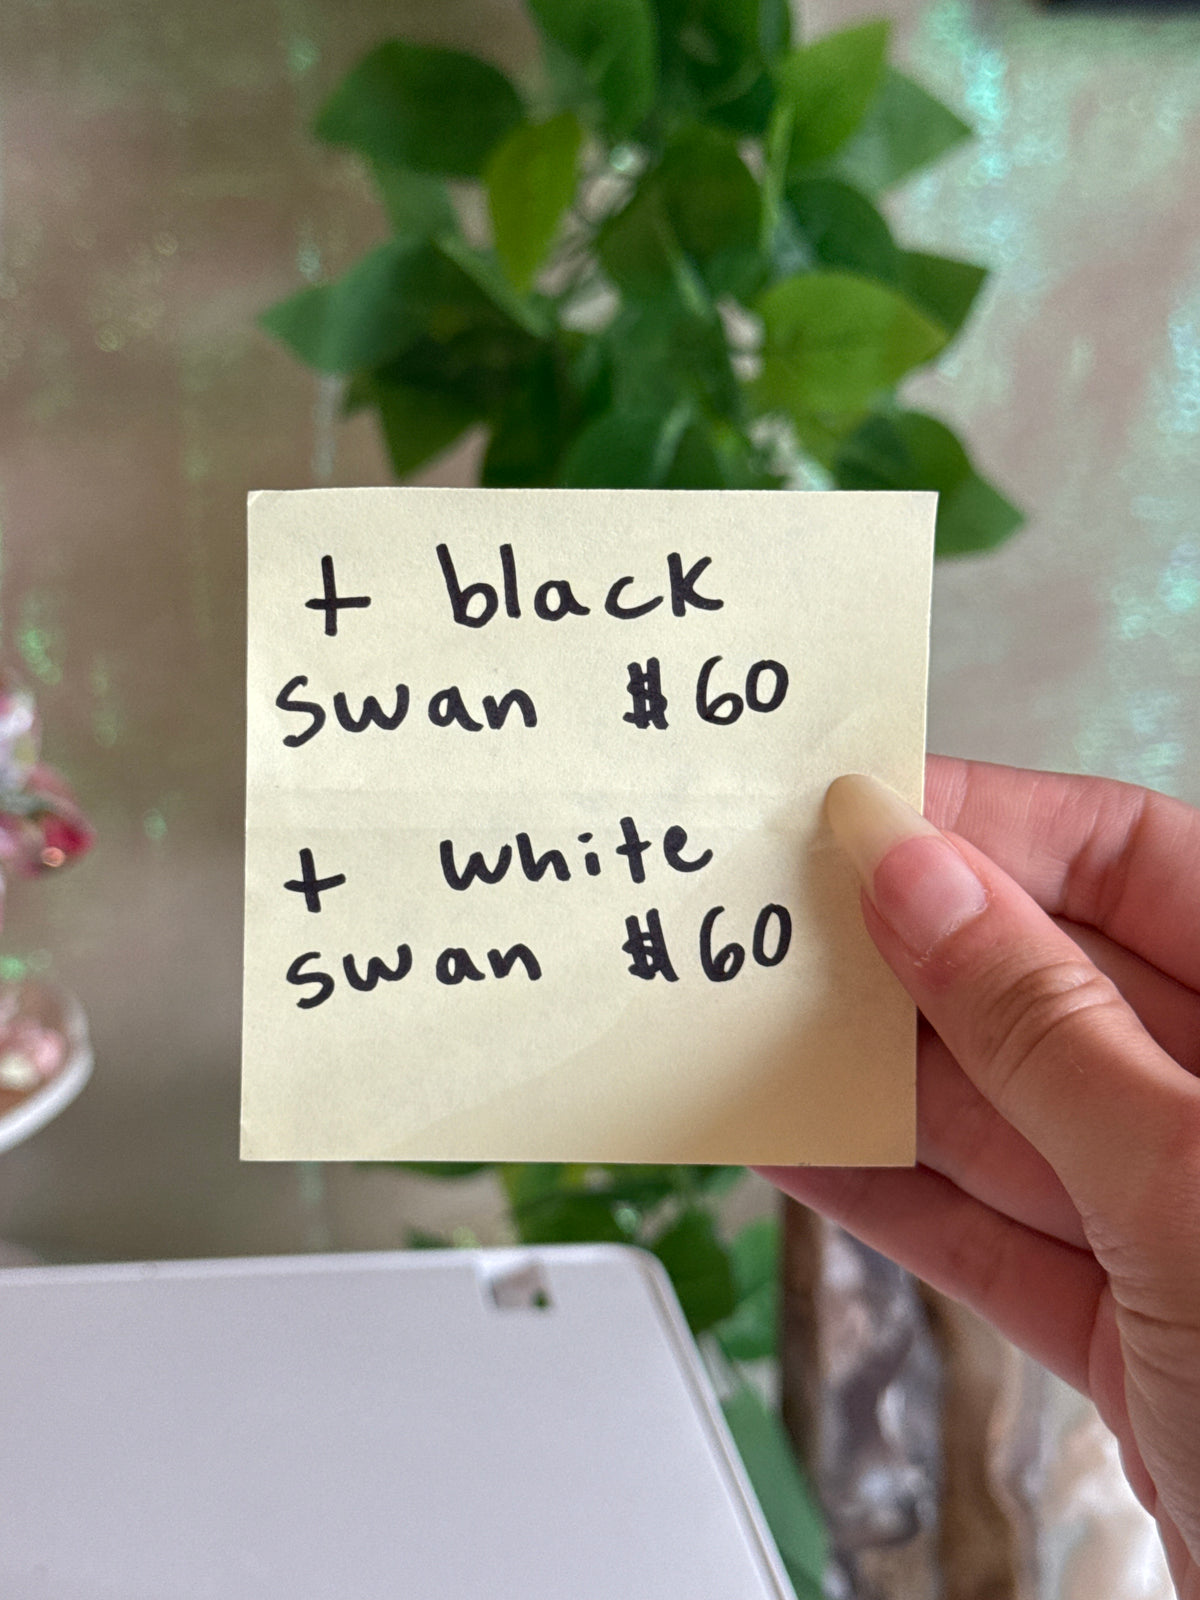 + black
swan $60
+ white
swan $60